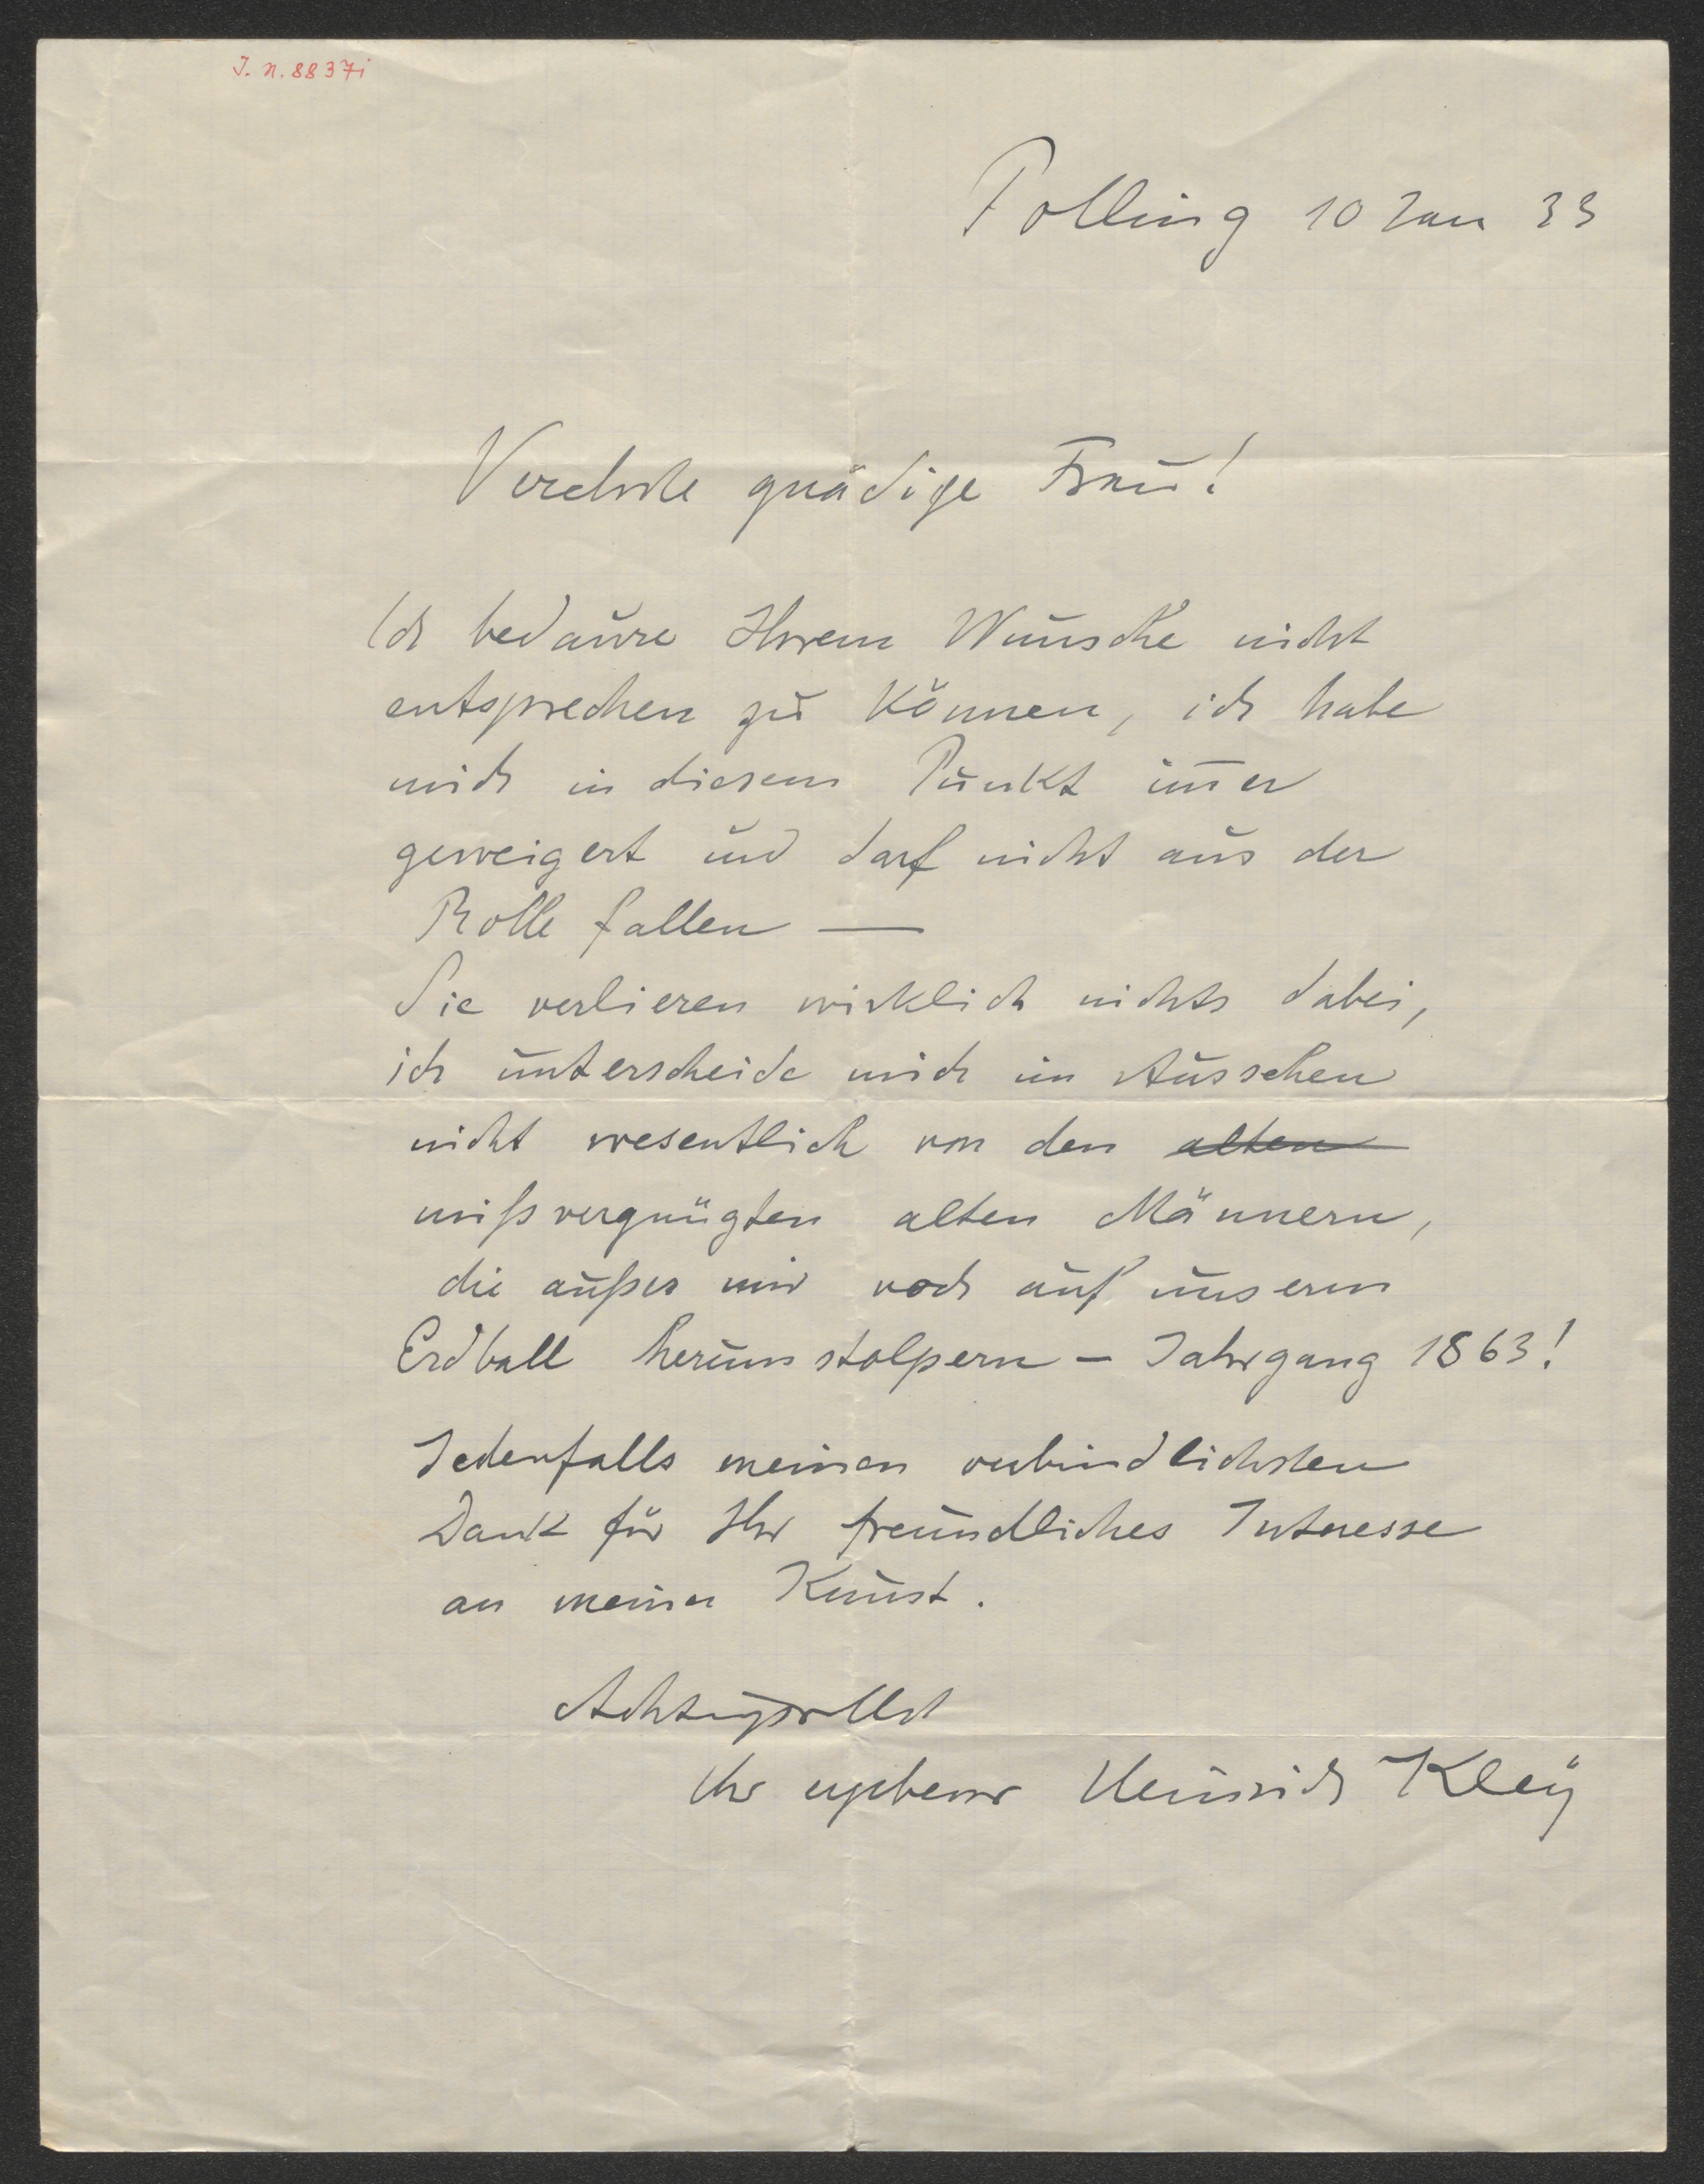 J. N. 88371
Polling 10 Jan 33
Verehrte gnädige Frau!
Ich bedaure Ihrem Wunsche nicht
entsprechen zu können, ich habe
mich in diesem Punkt im̄er
geweigert und darf nicht aus der
Rolle fallen —
Sie verlieren wirklich nichts dabei,
ich unterscheide mich im Aussehen
nicht wesentlich von den alten
mißvergnügten alten Männern,
die außer mir noch auf unserm
Erdball herumstolpern – Jahrgang 1863!
Jedenfalls meinen verbindlichsten
Dank für Ihr freundliches Interesse
an meiner Kunst.
Achtungsvollst
Ihr ergebener Heinrich Kley